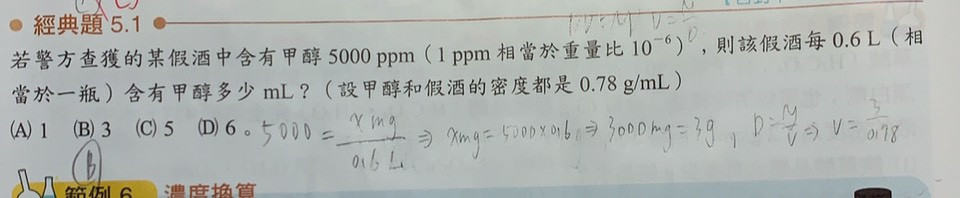 經典題 5.1
若警方查獲的某假酒中含有甲醇 5000 ppm（1 ppm 相當於重量比 10⁻⁶），則該假酒每 0.6 L（相
當於一瓶）含有甲醇多少 mL？（設甲醇和假酒的密度都是 0.78 g/mL）
(A) 1 (B) 3 (C) 5 (D) 6。 5000 = x mg / 0.6 L ⇒ x mg = 5000 × 0.6 ⇒ 3000 mg = 3g , D = M/V ⇒ V = 3/0.78
B
範例 6 濃度換算